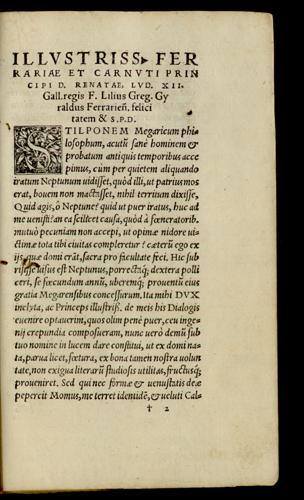 ILLVSTRISS. FER
RARIAE ET CARNVTI PRIN
CIPI D. RENATAE, LVD. XII.
Gall. regis F. Lilius Greg. Gy
raldus Ferrarieñ. felici
tatem & S.P.D.
STILPONEM Megaricum phi-
losophum, acutũ sanè hominem &
probatum antiquis temporibus acce
pimus, cùm per quietem aliquando
iratum Neptunum uidisset, quòd illi, ut patrius mos
erat, bouem non mactasset, nihil territum dixisse,
Quid agis, ô Neptune? quid ut puer iratus, huc ad
me uenisti? an ea scilicet causa, quòd à fœneratorib.
mutuò pecuniam non accepi, ut opimæ nidore ui-
ctimæ tota tibi ciuitas compleretur? cæterũ ego ex
ijs, quæ domi erãt, sacra pro facultate feci. Hic sub
risisse uisus est Neptunus, porrectaq́; dextera polli
ceri, se fœcundum annũ, uberemq́; prouentũ eius
gratia Megarensibus concessurum. Ita mihi DVX
inclyta, ac Princeps illustriss. de meis his Dialogis
euenire optauerim, quos olim penè puer, ceu inge-
nij crepundia composueram, nunc uerò demũ sub
tuo nomine in lucem dare constitui, ut ex domi na-
ta, parua licet, fœtura, ex bona tamen nostra uolun
tate, non exigua literarũ studiosis utilitas, fructusq́;
proueniret. Sed qui nec formæ & uenustatis deæ
pepercit Momus, me terret identidẽ, & ueluti Cal-
† 2